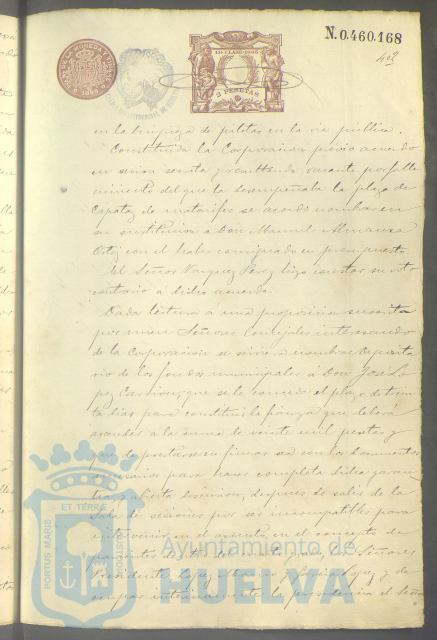 N.0.460.168
11ª CLASE-1895
2 PESETAS
en la limpieza de pilotas en la via pública.
Constituida la Corporacion previo acuerdo
en sesion secreta y resultando vacante por falle
cimiento del que la desempeñaba la plaza de
Capataz de matarifes se acordo nombrar en
su sustitucion a Don Manuel Almansa
Ortiz con el haber consignado en presupuesto.
El Señor Vazquez Perez hizo constar su voto
contrario a dicho acuerdo.
Dada lectura a una proposicion suscrita
por varios Señores Concejales interesando
de la Corporacion se sirviera nombrar Deposita
rio de los fondos municipales a Don José Lo
pez Carrion, que se le conceda el plazo de trein
ta dias para constituir la fianza que deberá
ascender a la suma de veinte mil pesetas y
que de prestarse en fincas sea con los documentos
necesarios para hacer completa dicha garan
tia, y abierta discusion, despues de salir de la
Sala de sesiones por ser incompatibles para
intervenir en el asunto, en el concepto de
parientes los Señores
Presidente Lopez y de
ocupar interinamente la presidencia el Señor
PORTUS MARIS ET TERRE CUSTODIA
Ayuntamiento de
HUELVA